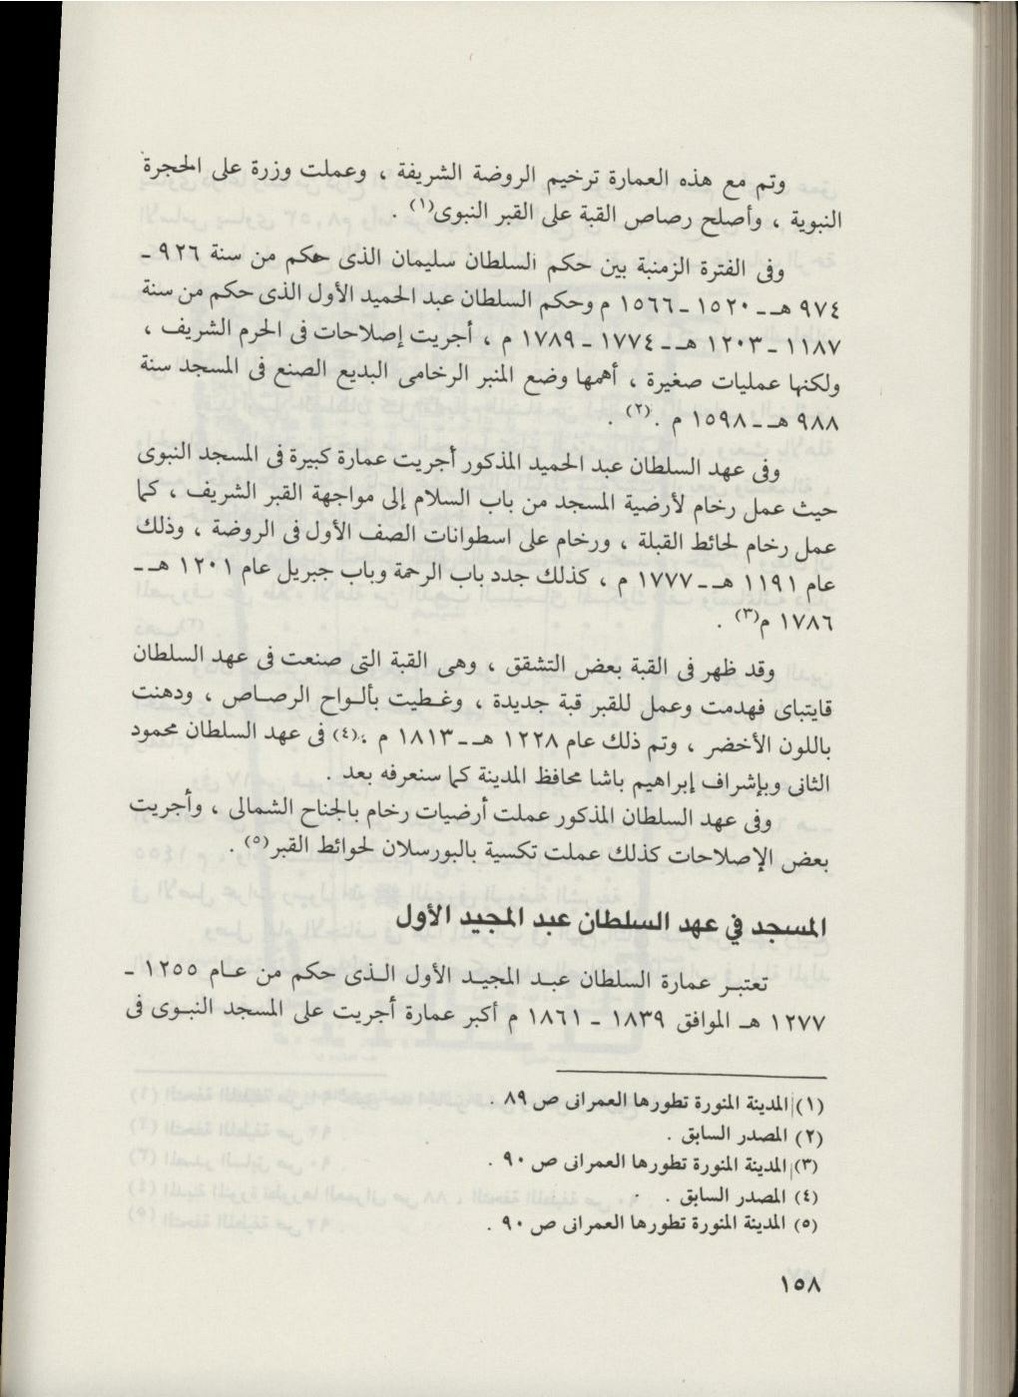 وتم مع هذه العمارة ترخيم الروضة الشريفة ، وعملت وزرة على الحجرة
النبوية ، وأصلح رصاص القبة على القبر النبوى(١) .
وفى الفترة الزمنية بين حكم السلطان سليمان الذى حكم من سنة ٩٢٦ ـ
٩٧٤ هـ ـ ١٥٢٠ ـ ١٥٦٦ م وحكم السلطان عبد الحميد الأول الذى حكم من سنة
١١٨٧ ـ ١٢٠٣ هـ ـ ١٧٧٤ ـ ١٧٨٩ م ، أجريت إصلاحات فى الحرم الشريف ،
ولكنها عمليات صغيرة ، أهمها وضع المنبر الرخامى البديع الصنع فى المسجد سنة
٩٨٨ هـ ـ ١٥٩٨ م .(٢) .
وفى عهد السلطان عبد الحميد المذكور أجريت عمارة كبيرة فى المسجد النبوى
حيث عمل رخام لأرضية المسجد من باب السلام إلى مواجهة القبر الشريف ، كما
عمل رخام لحائط القبلة ، ورخام على اسطوانات الصف الأول فى الروضة ، وذلك
عام ١١٩١ هـ ـ ١٧٧٧ م ، كذلك جدد باب الرحمة وباب جبريل عام ١٢٠١ هـ ـ
١٧٨٦ م(٣) .
وقد ظهر فى القبة بعض التشقق ، وهى القبة التى صنعت فى عهد السلطان
قايتباى فهدمت وعمل للقبر قبة جديدة ، وغـطيت بألـواح الرصـاص ، ودهنت
باللون الأخضر ، وتم ذلك عام ١٢٢٨ هـ ـ ١٨١٣ م .(٤) فى عهد السلطان محمود
الثانى وبإشراف إبراهيم باشا محافظ المدينة كما سنعرفه بعد .
وفى عهد السلطان المذكور عملت أرضيات رخام بالجناح الشمالى ، وأجريت
بعض الإصلاحات كذلك عملت تكسية بالبورسلان لحوائط القبر(٥) .
المسجد في عهد السلطان عبد المجيد الأول
تعتبـر عمارة السلطان عبـد المجيـد الأول الـذى حكم من عـام ١٢٥٥ ـ
١٢٧٧ هـ الموافق ١٨٣٩ ـ ١٨٦١ م أكبر عمارة أجريت على المسجد النبـوى فى
(١) المدينة المنورة تطورها العمرانى ص ٨٩ .
(٢) المصدر السابق .
(٣) المدينة المنورة تطورها العمرانى ص ٩٠ .
(٤) المصدر السابق .
(٥) المدينة المنورة تطورها العمرانى ص ٩٠ .
١٥٨